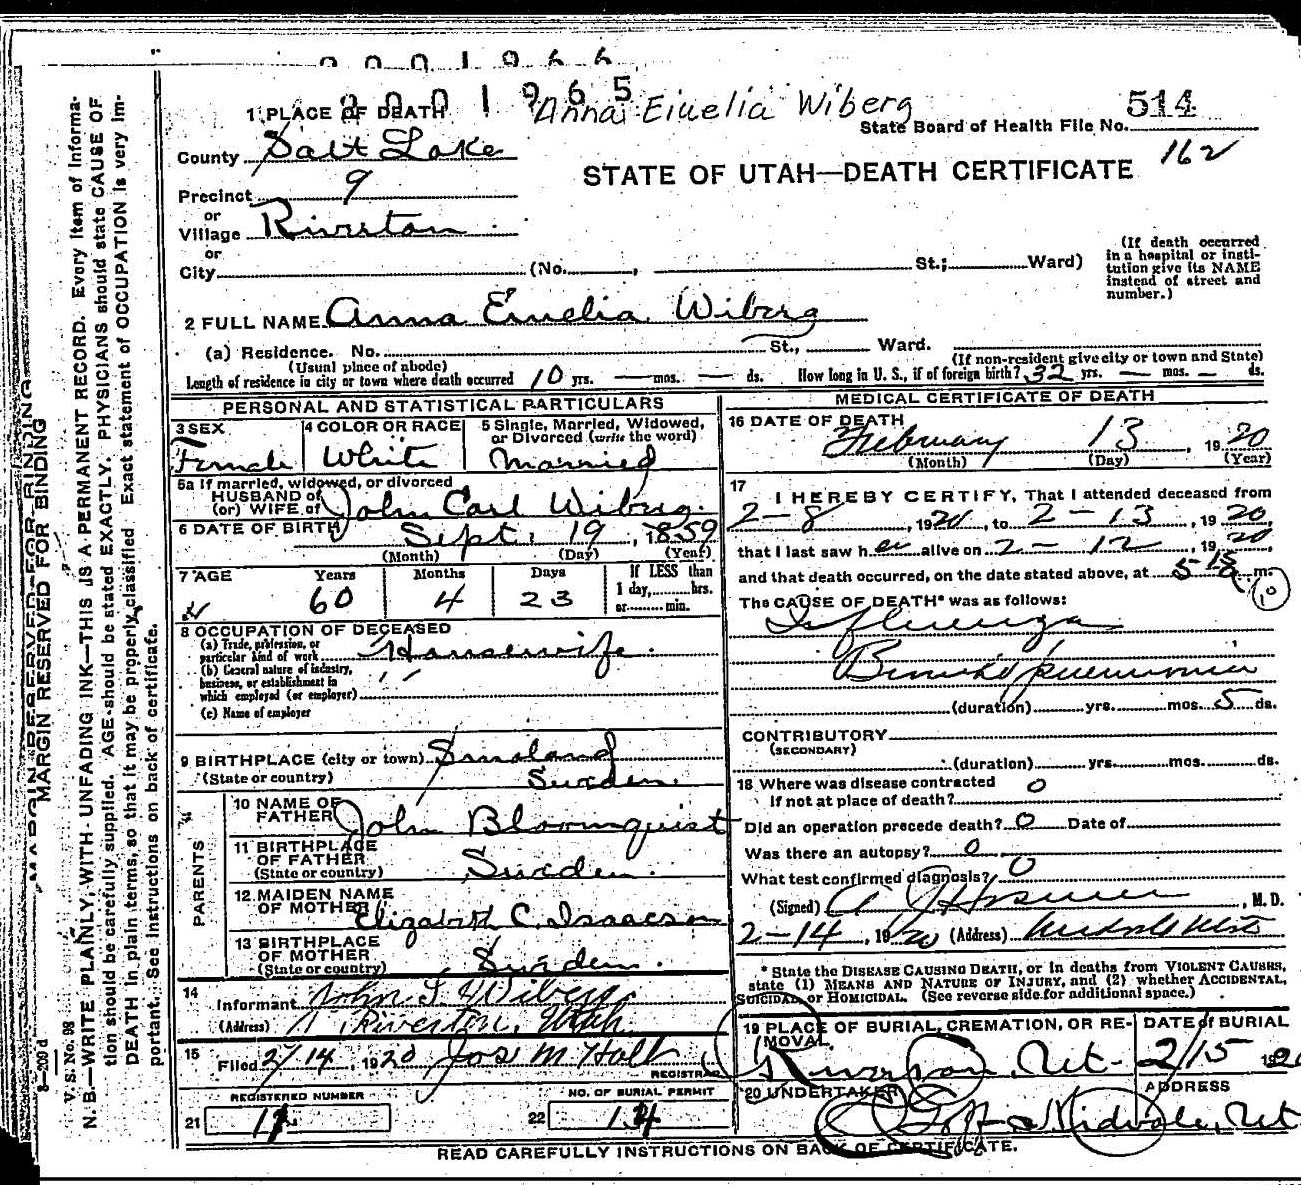 2001966
2001965
Anna Emelia Wiberg
514
1 PLACE OF DEATH
State Board of Health File No.
162
County Salt Lake
STATE OF UTAH—DEATH CERTIFICATE
Precinct 9
or
Village Riverton
or
City (No. , St.; Ward)
(If death occurred
in a hospital or insti-
tution give its NAME
instead of street and
number.)
2 FULL NAME Anna Emelia Wiberg
(a) Residence. No. St., Ward.
(Usual place of abode) (If non-resident give city or town and State)
Length of residence in city or town where death occurred 10 yrs. — mos. — ds. How long in U. S., if of foreign birth? 32 yrs. — mos. — ds.
PERSONAL AND STATISTICAL PARTICULARS
3 SEX
Female
4 COLOR OR RACE
White
5 Single, Married, Widowed,
or Divorced (write the word)
Married
5a If married, widowed, or divorced
HUSBAND of
(or) WIFE of John Carl Wiberg
6 DATE OF BIRTH Sept. 19, 1859
(Month) (Day) (Year)
7 AGE Years Months Days If LESS than
1 day, hrs.
or min.
60 4 23
8 OCCUPATION OF DECEASED
(a) Trade, profession, or
particular kind of work Housewife
(b) General nature of industry,
business, or establishment in
which employed (or employer) " "
(c) Name of employer
9 BIRTHPLACE (city or town) Smoland
(State or country) Sweden.
PARENTS
10 NAME OF
FATHER John Bloomquist
11 BIRTHPLACE
OF FATHER
(State or country) Sweden.
12 MAIDEN NAME
OF MOTHER Elizabeth C. Isaacson
13 BIRTHPLACE
OF MOTHER
(State or country) Sweden.
14
Informant John I. Wiberg
(Address) Riverton, Utah
15
Filed 2/14, 1920 Jos M Holt
REGISTRAR
REGISTERED NUMBER
21
NO. OF BURIAL PERMIT
22 14
MEDICAL CERTIFICATE OF DEATH
16 DATE OF DEATH
February 13, 1920
(Month) (Day) (Year)
17
I HEREBY CERTIFY, That I attended deceased from
2-8, 1920, to 2-13, 1920,
that I last saw her alive on 2-12, 1920,
and that death occurred, on the date stated above, at 5 15 a m.
The CAUSE OF DEATH* was as follows:
Influenza
Broncho pneumonia
(duration) yrs. mos. 5 ds.
CONTRIBUTORY
(SECONDARY)
(duration) yrs. mos. ds.
18 Where was disease contracted
If not at place of death? 0
Did an operation precede death? 0 Date of
Was there an autopsy? 0
What test confirmed diagnosis? 0
(Signed) , M.D.
2-14, 1920 (Address)
* State the DISEASE CAUSING DEATH, or in deaths from VIOLENT CAUSES,
state (1) MEANS AND NATURE OF INJURY, and (2) whether ACCIDENTAL,
SUICIDAL, or HOMICIDAL. (See reverse side for additional space.)
19 PLACE OF BURIAL, CREMATION, OR RE-
MOVAL
Riverton, Ut-
DATE of BURIAL
2/15 1920
20 UNDERTAKER
ADDRESS
Midvale, Ut
READ CAREFULLY INSTRUCTIONS ON BACK OF CERTIFICATE.
MARGIN RESERVED FOR BINDING
MARGIN RESERVED FOR BINDING
V. S. No. 98
N. B.—WRITE PLAINLY, WITH UNFADING INK—THIS IS A PERMANENT RECORD. Every Item of informa-
tion should be carefully supplied. AGE should be stated EXACTLY. PHYSICIANS should state CAUSE OF
DEATH in plain terms, so that it may be properly classified. Exact statement of OCCUPATION is very im-
portant. See instructions on back of certificate.